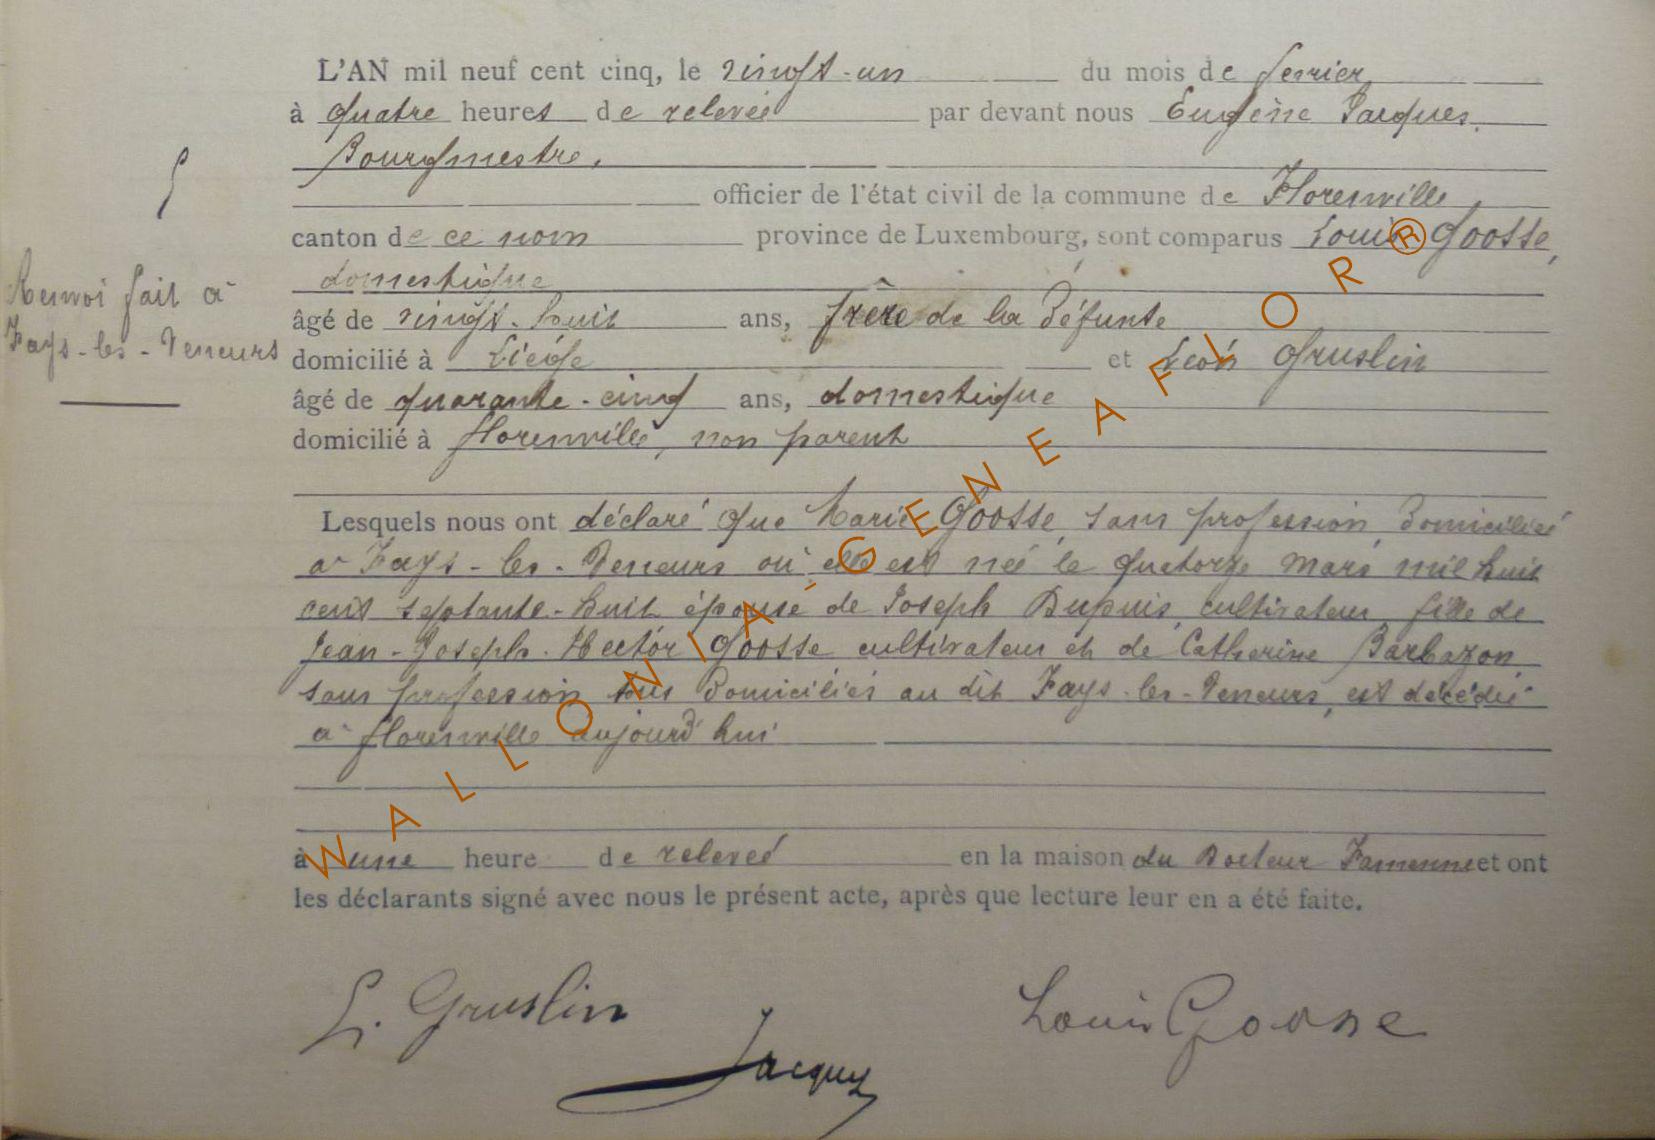 L'AN mil neuf cent cinq, le vingt-un du mois de fevrier
à quatre heures de relevée par devant nous Eugène Jacques,
Bourgmestre,
officier de l'état civil de la commune de Florenville,
canton de ce nom province de Luxembourg, sont comparus Louis Goosse,
domestique
âgé de vingt-huit ans, frère de la défunte
domicilié à Liége et Léon Gruslin
âgé de quarante-cinq ans, domestique
domicilié à florenville, non parent
Lesquels nous ont déclaré que Marie Goosse, sans profession, domiciliée
à Fays-les-Veneurs où elle est née le quatorze mars mil huit
cent septante-huit épouse de Joseph Dupuis, cultivateur, fille de
Jean-Joseph-Hector Goosse cultivateur et de Catherine Barbazon,
sans profession domiciliés au dit Fays-les-Veneurs, est décédée
à florenville aujourd'hui
à une heure de relevée en la maison du Docteur Famenne et ont
les déclarants signé avec nous le présent acte, après que lecture leur en a été faite.
L. Gruslin
Louis Goosse
Jacques
5
Renvoi fait à
Fays-les-Veneurs
WALLONIA-GENEAFLOR®